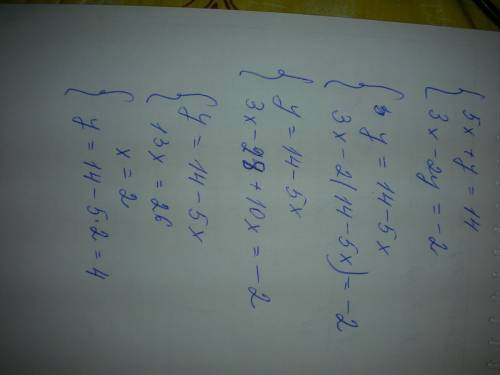 { 5x + y = 14
3x - 2y = -2
{ y = 14 - 5x
3x - 2(14 - 5x) = -2
{ y = 14 - 5x
3x - 28 + 10x = -2
{ y = 14 - 5x
13x = 26
{ x = 2
y = 14 - 5·2 = 4